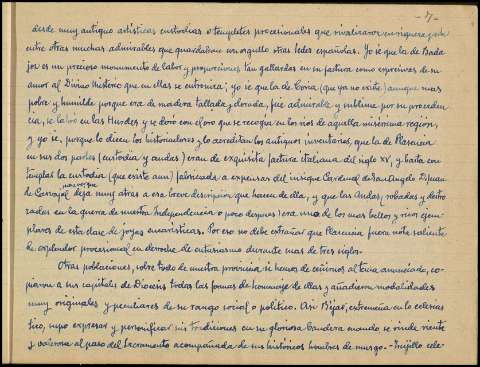 - 7 -
desde muy antiguo artísticas custodias o templetes procesionales que rivalizaron en riqueza y arte
entre otras muchas admirables que guardaban con orgullo otras sedes españolas. Yo sé que la de Bada
joz es un precioso monumento de labor y proporciones tan gallardas en su factura como expresivas de su
amor al Divino Misterio que en ellas se entroniza; yo sé que la de Coria (que ya no existe) aunque mas
pobre y humilde porque era de madera tallada y dorada, fue admirable y sublime por su proceden
cia, se labró en las Hurdes y se doró con el oro que se recogía en los rios de aquella misérrima region,
y yo sé, porque lo dicen los historiadores y lo acreditan los antiguos inventarios, que la de Plasencia
en sus dos partes (custodia y andas) eran de exquisita factura italiana del siglo XV, y basta con
templar la custodia (que existe aun) fabricada a expensas del insigne Cardenal de San Angelo D. Juan
de Carvajal para ver que deja muy atras a esa breve descripcion que hacen de ella, y que las Andas (robadas y destro
zadas en la guerra de nuestra Independencia o poco despues) era una de los mas bellos y ricos ejem
plares de esta clase de joyas eucarísticas. Por eso no debe extrañar que Plasencia fuera nota saliente
de esplendor procesional en derroche de entusiasmo durante mas de tres siglos.
Otras poblaciones, sobre todo de nuestra provincia si hemos de ceñirnos al tema anunciado, co
piaron a sus capitales de Diocesis todas las formas de homenaje de ellas y añadieron modalidades
muy originales y peculiares de su rango social o politico. Asi Béjar, extremeña en lo eclesias
tico, supo expresar y personificar sus tradiciones en su gloriosa bandera cuando se rinde reverente
y valerosa al paso del Sacramento acompañada de sus históricos hombres de musgo. - Trujillo cele